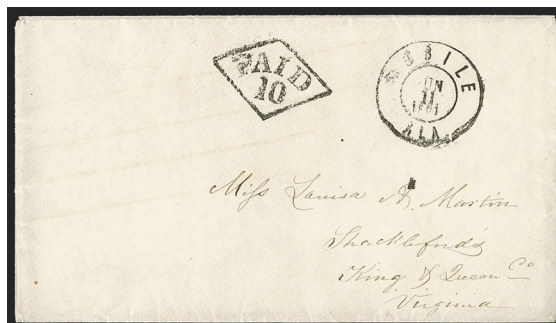 PAID
10
MOBILE
JUN
11
1861
ALA.
Miss Louisa A. Martin
Shackleford's
King & Queen Co
Virginia